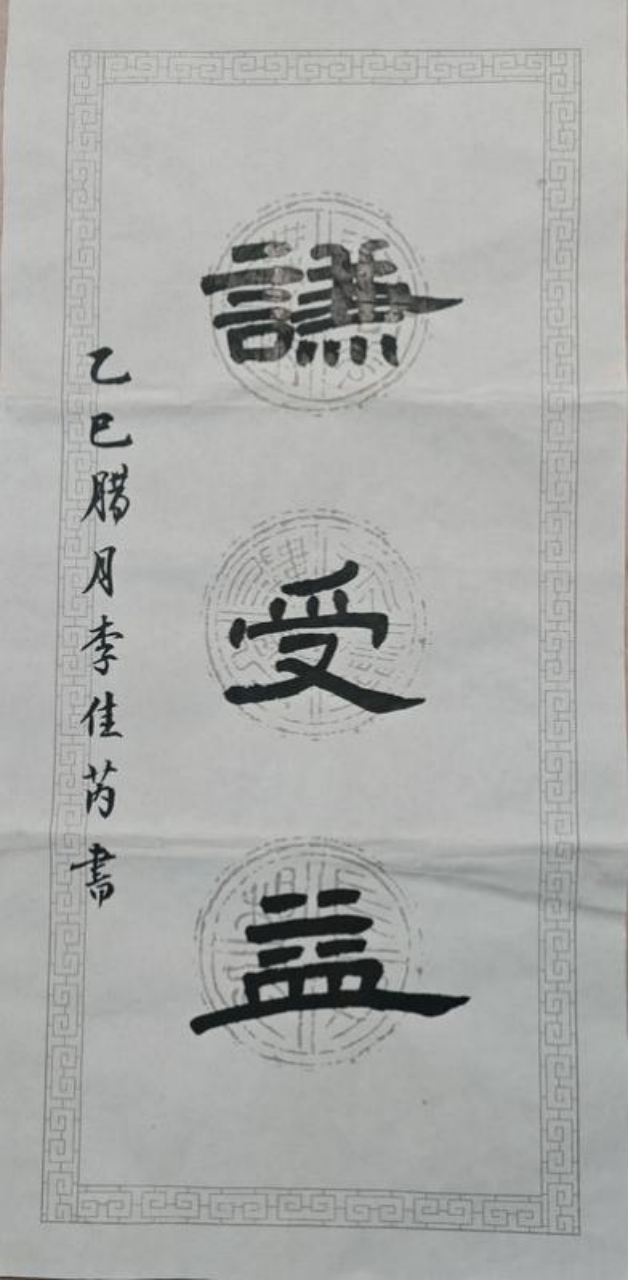 謙受益
乙巳腊月李佳芮書